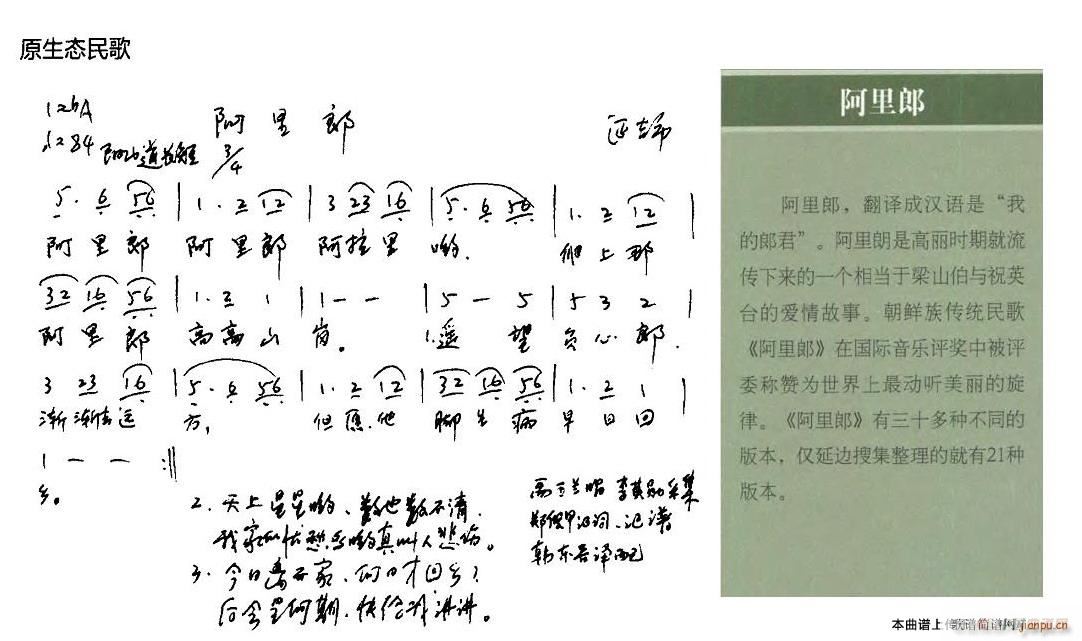 原生态民歌
1=♭A
阿里郎
3/4
5. 6 56 | 1. 2 12 | 3 23 16 | 5. 6 56 | 1. 2 12 |
阿里郎 阿里郎 阿拉里 哟. 爬上那
32 16 56 | 1. 2 1 | 1 - - | 5 - 5 | 5 3 2 |
阿里郎 高高山岗。 1.遥望负心郎.
3 23 16 | 5. 6 56 | 1. 2 12 | 32 16 56 | 1. 2 1 |
渐渐去远方, 但愿他脚生病早日回
1 - - :||
乡。
2. 天上星星哟、数也数不清.
我家的忧愁哟真叫人悲伤。
3. 今日离开家.何日才回乡?
后会是何期.快给我讲讲。
采集
记谱
韩东吾译配
阿里郎
阿里郎,翻译成汉语是“我
的郎君”。阿里朗是高丽时期就流
传下来的一个相当于梁山伯与祝英
台的爱情故事。朝鲜族传统民歌
《阿里郎》在国际音乐评奖中被评
委称赞为世界上最动听美丽的旋
律。《阿里郎》有三十多种不同的
版本,仅延边搜集整理的就有21种
版本。
本曲谱上传
简谱网 jianpu.cn